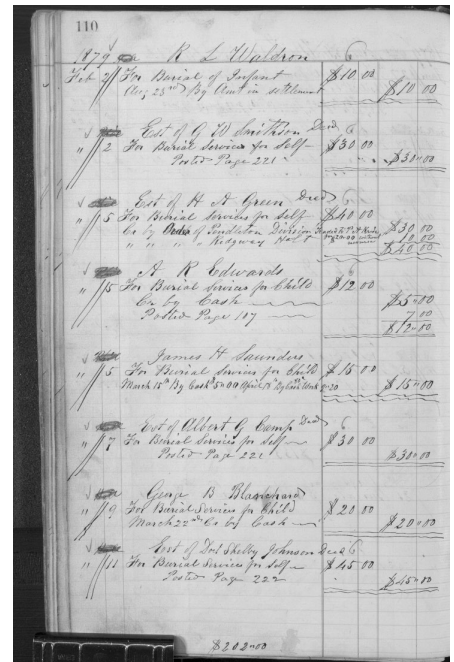 110
1879 R L Waldron 6
Feb 2 For Burial of Infant $10 00
Aug 23rd By Amt in settlement $10 00
Est of G W Decd 6
" 2 For Burial Services for Self $30 00
Posted Page 221 $30 00
Est of H A Green Decd 6
" 5 For Burial Services for Self $40 00
Cr by Order of Pendleton Division $30 00
" " " " Ridgway 10 00
$40 00
A R Edwards 6
" 5 For Burial Services for Child $12 00
Cr by Cash $5 00
Posted Page 107 7 00
$12 00
James H Saunders
" 5 For Burial Services for Child $15 00
March 15th By Cash 5 00 April $15 00
Est of Albert G Camp Decd 6
" 7 For Burial Services for Self $30 00
Posted Page 221 $30 00
George B Blanchard 6
" 9 For Burial Services for Child $20 00
March 22nd Cr by Cash $20 00
Est of Shelby Johnson Decd 6
" 11 For Burial Services for Self $45 00
Posted Page 222 $45 00
$202 00